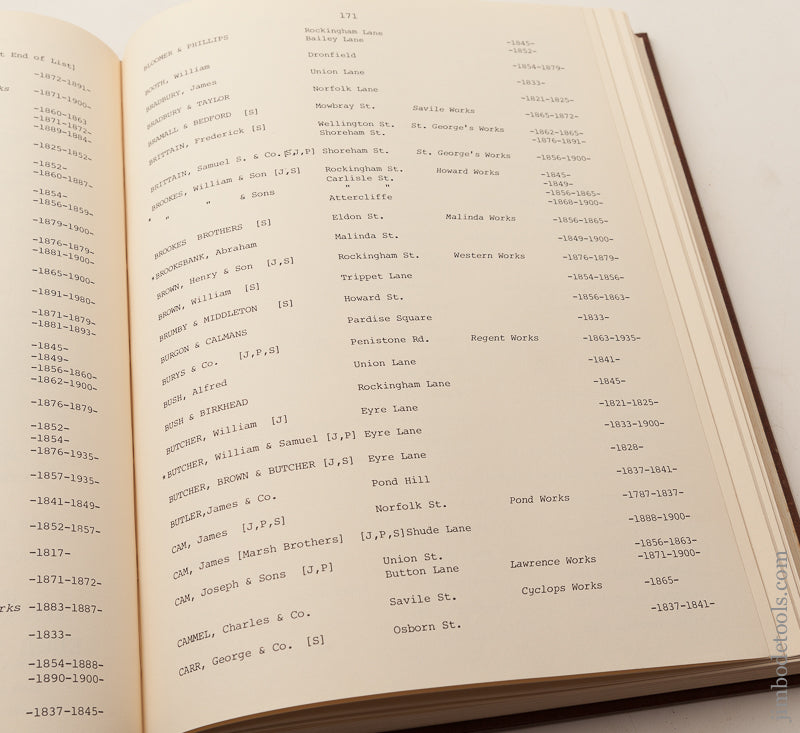 t End of List]
-1872-1891-
ks -1871-1900-
-1860-1863
-1871-1872-
-1889-1884-
-1825-1852-
-1852-
-1860-1887-
-1854-
-1856-1859-
-1879-1900-
-1876-1879-
-1881-1900-
-1865-1900-
-1891-1980-
-1871-1879-
-1881-1893-
-1845-
-1849-
-1856-1860-
-1862-1900-
-1876-1879-
-1852-
-1854-
-1876-1935-
-1857-1935-
-1841-1849-
-1852-1857-
-1817-
-1871-1872-
rks -1883-1887-
-1833-
-1854-1888-
-1890-1900-
-1837-1845-
171
BLOOMER & PHILLIPS Rockingham Lane -1845-
Bailey Lane -1852-
BOOTH, William Dronfield -1854-1879-
BRADBURY, James Union Lane -1833-
BRADBURY & TAYLOR Norfolk Lane -1821-1825-
BRAMALL & BEDFORD [S] Mowbray St. Savile Works -1865-1872-
BRITTAIN, Frederick [S] Wellington St. St. George's Works -1862-1865-
Shoreham St. -1876-1891-
BRITTAIN, Samuel S. & Co.[S,J,P] Shoreham St. St. George's Works -1856-1900-
BROOKES, William & Son [J,S] Rockingham St. Howard Works -1845-
Carlisle St. -1849-
* " " & Sons " " -1856-1865-
Attercliffe -1868-1900-
BROOKES BROTHERS [S] Eldon St. Malinda Works -1856-1865-
*BROOKSBANK, Abraham Malinda St. -1849-1900-
BROWN, Henry & Son [J,S] Rockingham St. Western Works -1876-1879-
BROWN, William [S] Trippet Lane -1854-1856-
BRUMBY & MIDDLETON [S] Howard St. -1856-1863-
BURGON & CALMANS Pardise Square -1833-
BURYS & Co. [J,P,S] Penistone Rd. Regent Works -1863-1935-
BUSH, Alfred Union Lane -1841-
BUSH & BIRKHEAD Rockingham Lane -1845-
BUTCHER, William [J] Eyre Lane -1821-1825-
*BUTCHER, William & Samuel [J,P] Eyre Lane -1833-1900-
BUTCHER, BROWN & BUTCHER [J,S] Eyre Lane -1828-
BUTLER,James & Co. Pond Hill -1837-1841-
CAM, James [J,P,S] Norfolk St. Pond Works -1787-1837-
CAM, James [Marsh Brothers] [J,P,S]Shude Lane -1888-1900-
CAM, Joseph & Sons [J,P] Union St. -1856-1863-
Button Lane Lawrence Works -1871-1900-
CAMMEL, Charles & Co. Savile St. Cyclops Works -1865-
CARR, George & Co. [S] Osborn St. -1837-1841-
jimbodetools.com